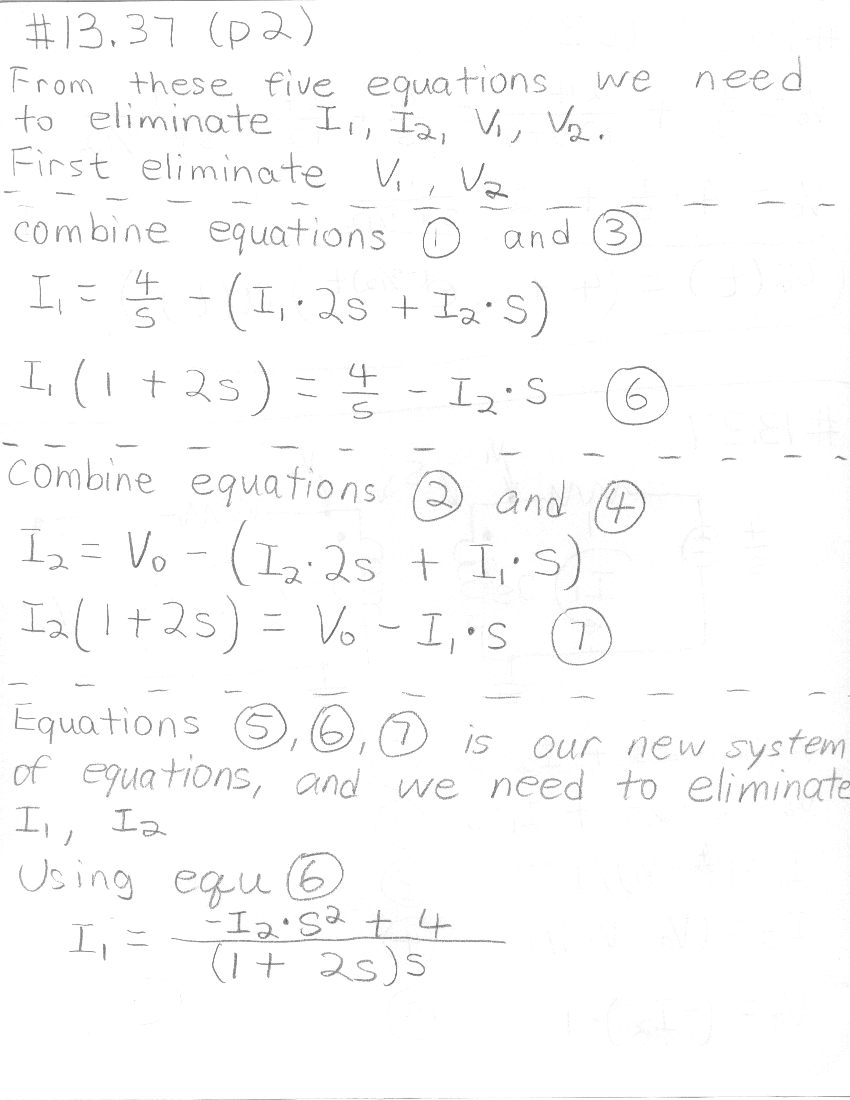 #13.37 (p2)
From these five equations we need
to eliminate I₁, I₂, V₁, V₂.
First eliminate V₁, V₂
combine equations ① and ③
I₁ = 4/s - (I₁·2s + I₂·s)
I₁(1 + 2s) = 4/s - I₂·s ⑥
combine equations ② and ④
I₂ = V₀ - (I₂·2s + I₁·s)
I₂(1+2s) = V₀ - I₁·s ⑦
Equations ⑤, ⑥, ⑦ is our new system
of equations, and we need to eliminate
I₁, I₂
Using equ ⑥
I₁ = (-I₂·s² + 4)/((1 + 2s)s)